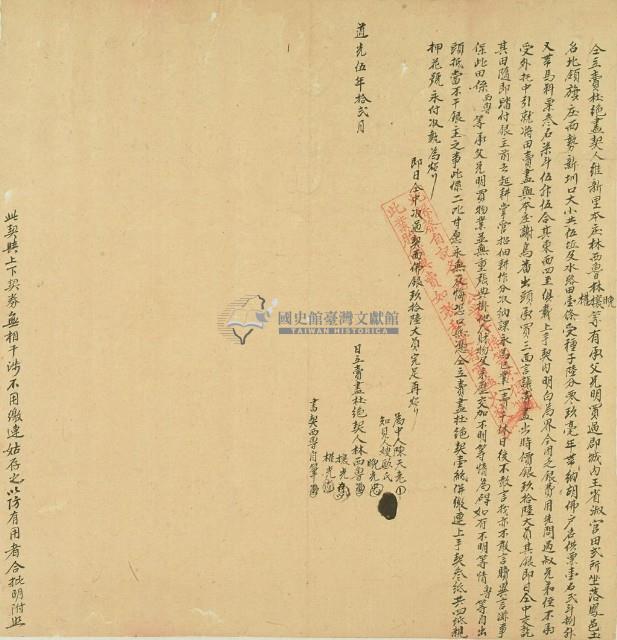 仝立賣杜絕盡契人維新里本庄林西魯林樓等有承父兄明買過郡城內王省淑官田弍所坐落鳳邑土
晚權
名北領旗庄西勢新圳口大小共伍坵及水路田壹條受種子陸分零玖毫年帶納胡佛戶店供粟壹石弍斗捌升
又帶馬料粟叁石柒斗伍升伍合其東西四至俱載上手契內明白為界今因乏銀費用先問過叔兄弟侄不為
受外托中引就將田賣盡與本庄謝烏番出頭承買三面言議賣盡出時價銀玖拾陸大員其銀即日仝中交訖
其田隨即踏付銀主前去起耕掌管招佃耕作分收納課永為己業一賣
休日後不敢言找亦不敢言贖異言滋事
保此田係西魯等承父兄明買物業並無重張典掛他人財物及來歷交加不明等情為碍如有不明等情魯等自出
頭抵當不干銀主之事此係二比甘愿永無反悔恐口無憑仝立賣盡杜絕契壹紙併繳連上手契叁紙共四紙親
押花號永付收執為炤
即日仝中收過契面佛銀玖拾陸大員完足再炤
為中人陳天老
知見人嫂歐氏
晚光
日立賣盡杜絕契人林西魯
樓光
權光
書契西魯自筆
道光伍年拾弍月
此契與上下契券無相干涉不用繳連姑存之以防有用者合批明附照
國史館臺灣文獻館
TAIWAN HISTORICA